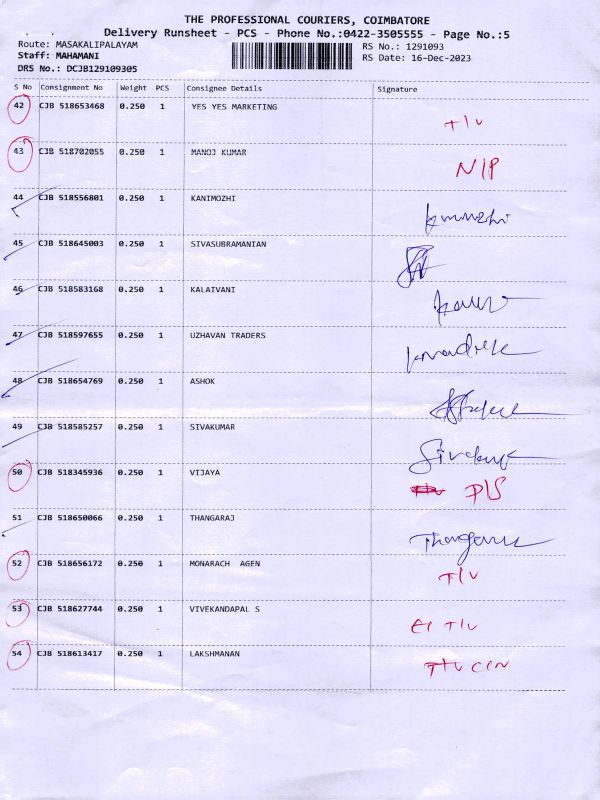 THE PROFESSIONAL COURIERS, COIMBATORE
Delivery Runsheet - PCS - Phone No.:0422-3505555 - Page No.:5
Route: MASAKALIPALAYAM RS No.: 1291093
Staff: MAHAMANI RS Date: 16-Dec-2023
DRS No.: DCJB129109305
S No Consignment No Weight PCS Consignee Details Signature
42 CJB 518653468 0.250 1 YES YES MARKETING T/L
43 CJB 518702055 0.250 1 MANOJ KUMAR N/P
44 CJB 518556801 0.250 1 KANIMOZHI
45 CJB 518645003 0.250 1 SIVASUBRAMANIAN
46 CJB 518583168 0.250 1 KALAIVANI
47 CJB 518597655 0.250 1 UZHAVAN TRADERS
48 CJB 518654769 0.250 1 ASHOK
49 CJB 518585257 0.250 1 SIVAKUMAR
50 CJB 518345936 0.250 1 VIJAYA P/S
51 CJB 518650066 0.250 1 THANGARAJ
52 CJB 518656172 0.250 1 MONARACH AGEN T/L
53 CJB 518627744 0.250 1 VIVEKANDAPAL S T/L
54 CJB 518613417 0.250 1 LAKSHMANAN